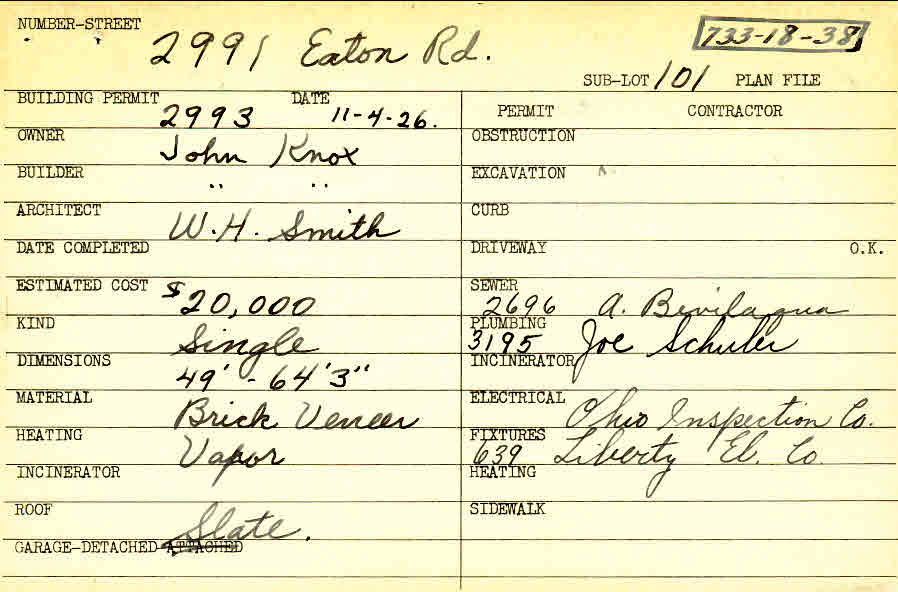 NUMBER-STREET
2991 Eaton Rd.
733-18-38
SUB-LOT 101 PLAN FILE
BUILDING PERMIT DATE
2993 11-4-26.
PERMIT CONTRACTOR
OWNER John Knox
OBSTRUCTION
BUILDER " "
EXCAVATION
ARCHITECT W.H. Smith
CURB
DATE COMPLETED
DRIVEWAY O.K.
ESTIMATED COST $20,000
SEWER 2696 A. Bevilaqua
KIND Single
PLUMBING 3195 Joe Schuler
DIMENSIONS 49' - 64'3"
INCINERATOR
MATERIAL Brick Veneer
ELECTRICAL Ohio Inspection Co.
HEATING Vapor
FIXTURES 639 Liberty El. Co.
INCINERATOR
HEATING
ROOF Slate.
SIDEWALK
GARAGE-DETACHED ATTACHED